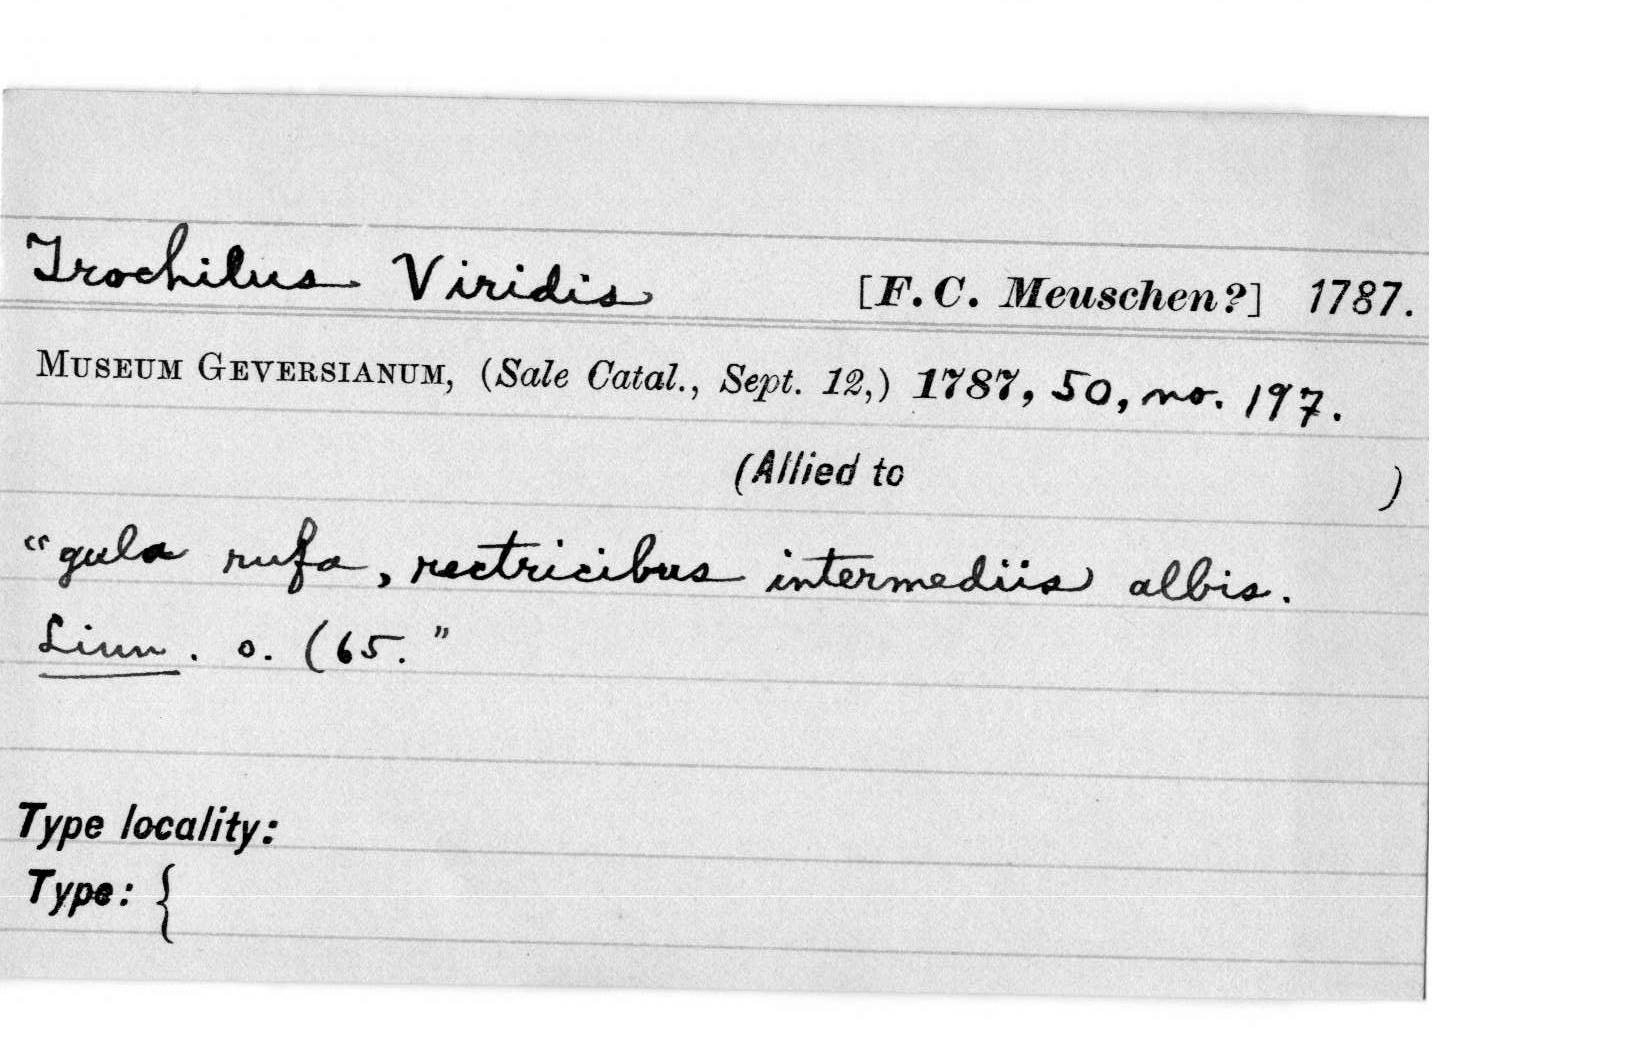 Trochilus Viridis [F. C. Meuschen?] 1787.
Museum Geversianum, (Sale Catal., Sept. 12,) 1787, 50, no. 197.
(Allied to )
"gula rufa, rectricibus intermediis albis.
Linn. o. (65."
Type locality:
Type: {